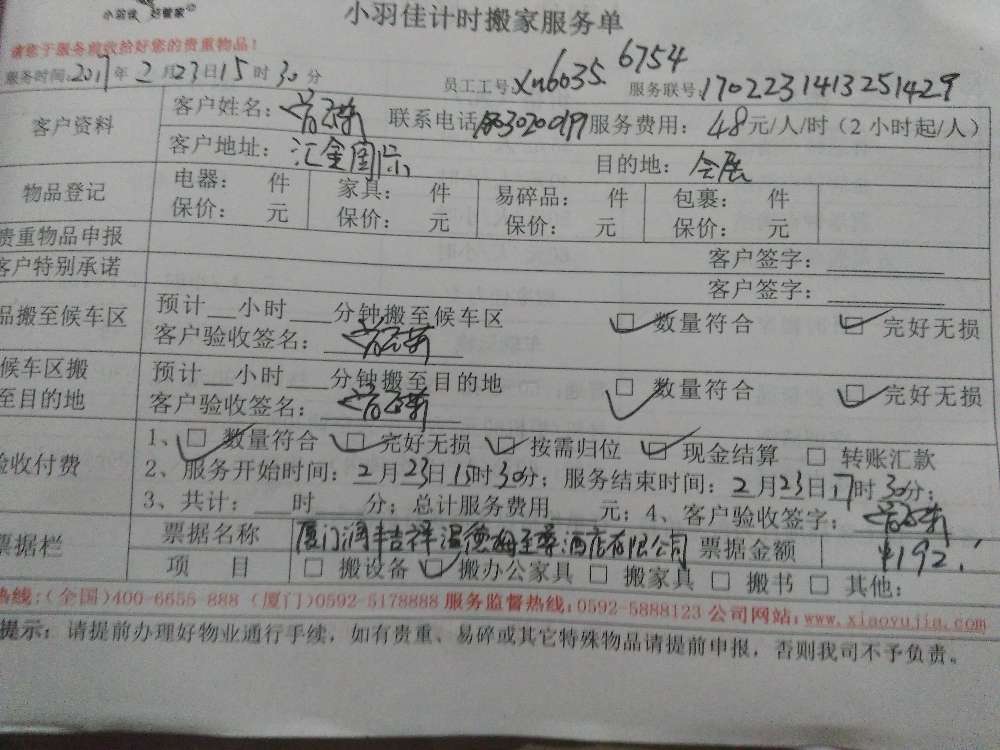 小羽佳 好管家
小羽佳计时搬家服务单
请您于服务前收拾好您的贵重物品！
服务时间:2017年2月23日15时30分 员工工号:xn6035 6754 服务联号:1702231413251429
客户资料 客户姓名: 联系电话 服务费用: 48元/人/时(2小时起/人)
客户地址: 汇金国际 目的地: 会展
物品登记 电器: 件 家具: 件 易碎品: 件 包裹: 件
保价: 元 保价: 元 保价: 元 保价: 元
贵重物品申报 客户签字:
客户特别承诺 客户签字:
品搬至候车区 预计__小时___分钟搬至候车区 □ 数量符合 □ 完好无损
客户验收签名:
候车区搬至目的地 预计__小时___分钟搬至目的地 □ 数量符合 □ 完好无损
客户验收签名:
验收付费 1、□ 数量符合 □ 完好无损 □ 按需归位 □ 现金结算 □ 转账汇款
2、服务开始时间: 2月23日15时30分; 服务结束时间: 2月23日17时30分;
3、共计:___时____分; 总计服务费用____元; 4、客户验收签字:
票据栏 票据名称 厦门润丰吉祥温德姆至尊酒店有限公司 票据金额 ¥192
项 目 □ 搬设备 □ 搬办公家具 □ 搬家具 □ 搬书 □ 其他:
热线:(全国)400-6655 888 (厦门)0592-5178888 服务监督热线:0592-5888123 公司网站:www.xiaoyujia.com
提示: 请提前办理好物业通行手续，如有贵重、易碎或其它特殊物品请提前申报，否则我司不予负责。